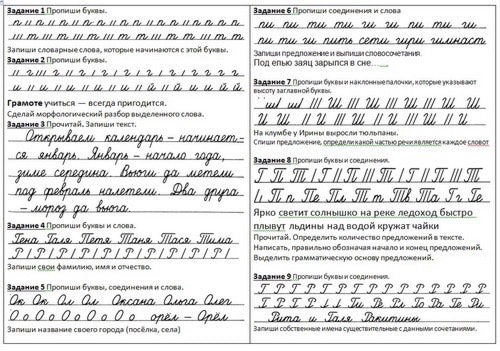 Задание 1 Пропиши буквы.
Запиши словарные слова, которые начинаются с этой буквы.
Задание 2 Пропиши буквы.
Грамоте учиться — всегда пригодится.
Сделай морфологический разбор выделенного слова.
Задание 3 Прочитай. Запиши текст.
Открываем календарь – начинает-
ся январь. Январь – начало года,
зиме середина. Вьюги да метели
под февраль налетели. Два друга
– мороз да вьюга.
Задание 4 Пропиши буквы и слова.
Гена Галя Петя Таня Тася Тима
Запиши свои фамилию, имя и отчество.
Задание 5 Пропиши буквы, соединения и слова.
Ок Ок Ол Ол Оксана Ольга Олег
О о О о О о О о орёл – Орёл
Запиши название своего города (посёлка, села)
Задание 6 Пропиши соединения и слова
пи ти пи ти сети гири гимнаст
Запиши предложение и выпиши словосочетания
Под елью заяц зарылся в сне….
Задание 7 Пропиши буквы и наклонные палочки, которые указывают
высоту заглавной буквы.
На клумбе у Ирины выросли тюльпаны.
Спиши предложение, определи какой частью речи является каждое словот
Задание 8 Пропиши буквы и соединения.
П п Пе Пл Т т Тв Та Г г Ге
Ярко светит солнышко на реке ледоход быстро
плывут льдины над водой кружат чайки
Прочитай. Определить количество предложений в тексте.
Написать, правильно обозначая начало и конец предложений.
Выделить грамматическую основу предложений.
Задание 9 Пропиши буквы и соединения.
Рита и Галя Ракитины
Запиши собственные имена существительные с данными сочетаниями.